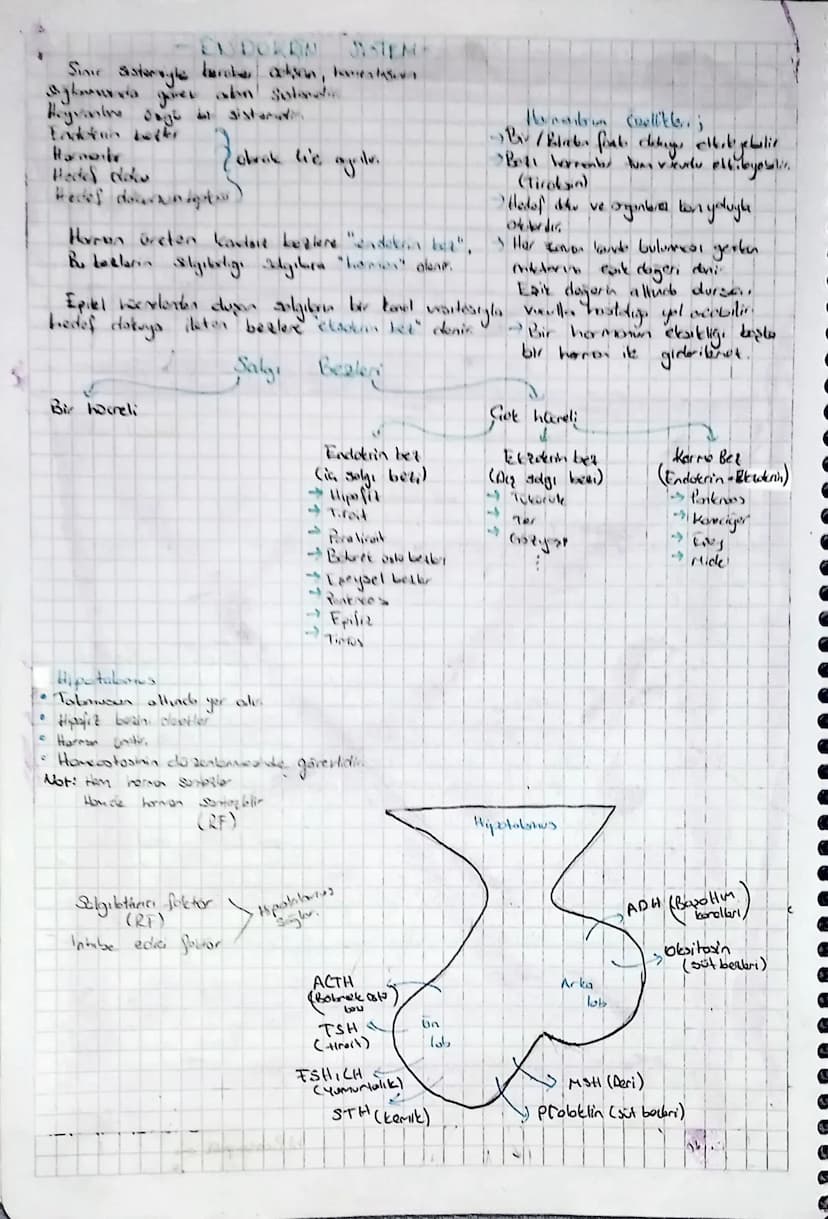 - ENDOKRİN SİSTEM -
Sinir sistemiyle beraber çalışan, homeostasinin
sağlanmasında görev alan sistemdir.
Hayvanlara özgü bir sistemdir.
Endokrin bezler
Hormonlar
Hedef doku
Hedef
olarak
Hormon üreten kanalsız bezlere "endokrin bez",
Bu bezlerin salgıladığı salgılara "hormon" denir.
Epitel hücrelerden oluşan salgıların bir kanal vasıtasıyla
hedef dokuya ileten bezlere "ekzokrin bez" denir.
Hormonların Özellikleri;
→ Bir / Birden fazla dokuyu etkileyebilir
→ Bazı hormonlar tüm vücudu etkileyebilir.
(Tiroksin)
→ Hedef doku ve organlara kan yoluyla
→ Her zaman kanda bulunması gereken
miktarın eşik değeri denir.
Eşik değerin altında dursa
vücutta hastalığa yol açabilir.
→ Bir hormonun eksikliği başka
bir hormon ile giderilemez.
Salgı Bezleri
Bir hücreli
Çok hücreli
Endokrin bez
(iç salgı bezi)
→ Hipofiz
→ Tiroit
→ Paratiroit
→ Böbrek üstü bezleri
→ Eşeysel bezler
→ Pankreas
→ Epifiz
→ Timus
Ekzokrin bez
(Dış salgı bezi)
→ Tükürük
→ Ter
→ Gözyaşı
⋮
Karma Bez
(Endokrin + Ekzokrin)
→ Pankreas
→ Karaciğer
→ Eşey
→ Mide
Hipotalamus
• Talamusun altında yer alır.
• Hipofiz bezini denetler
• Hormon üretir.
• Homeostasinin düzenlenmesinde görevlidir.
Not: Hem hormon sentezler
Hem de hormon
(RF)
Salgılatıcı faktör
(RF)
İnhibe edici faktör
Hipotalamus
sağlar.
Hipotalamus
ADH (Boşaltım
kanalları)
Oksitosin
(süt bezleri)
Arka
lob
Ön
lob
ACTH
(Böbrek üstü
bezi)
TSH
(tiroit)
FSH, LH
(yumurtalık)
STH (kemik)
MSH (Deri)
Prolaktin (süt bezleri)